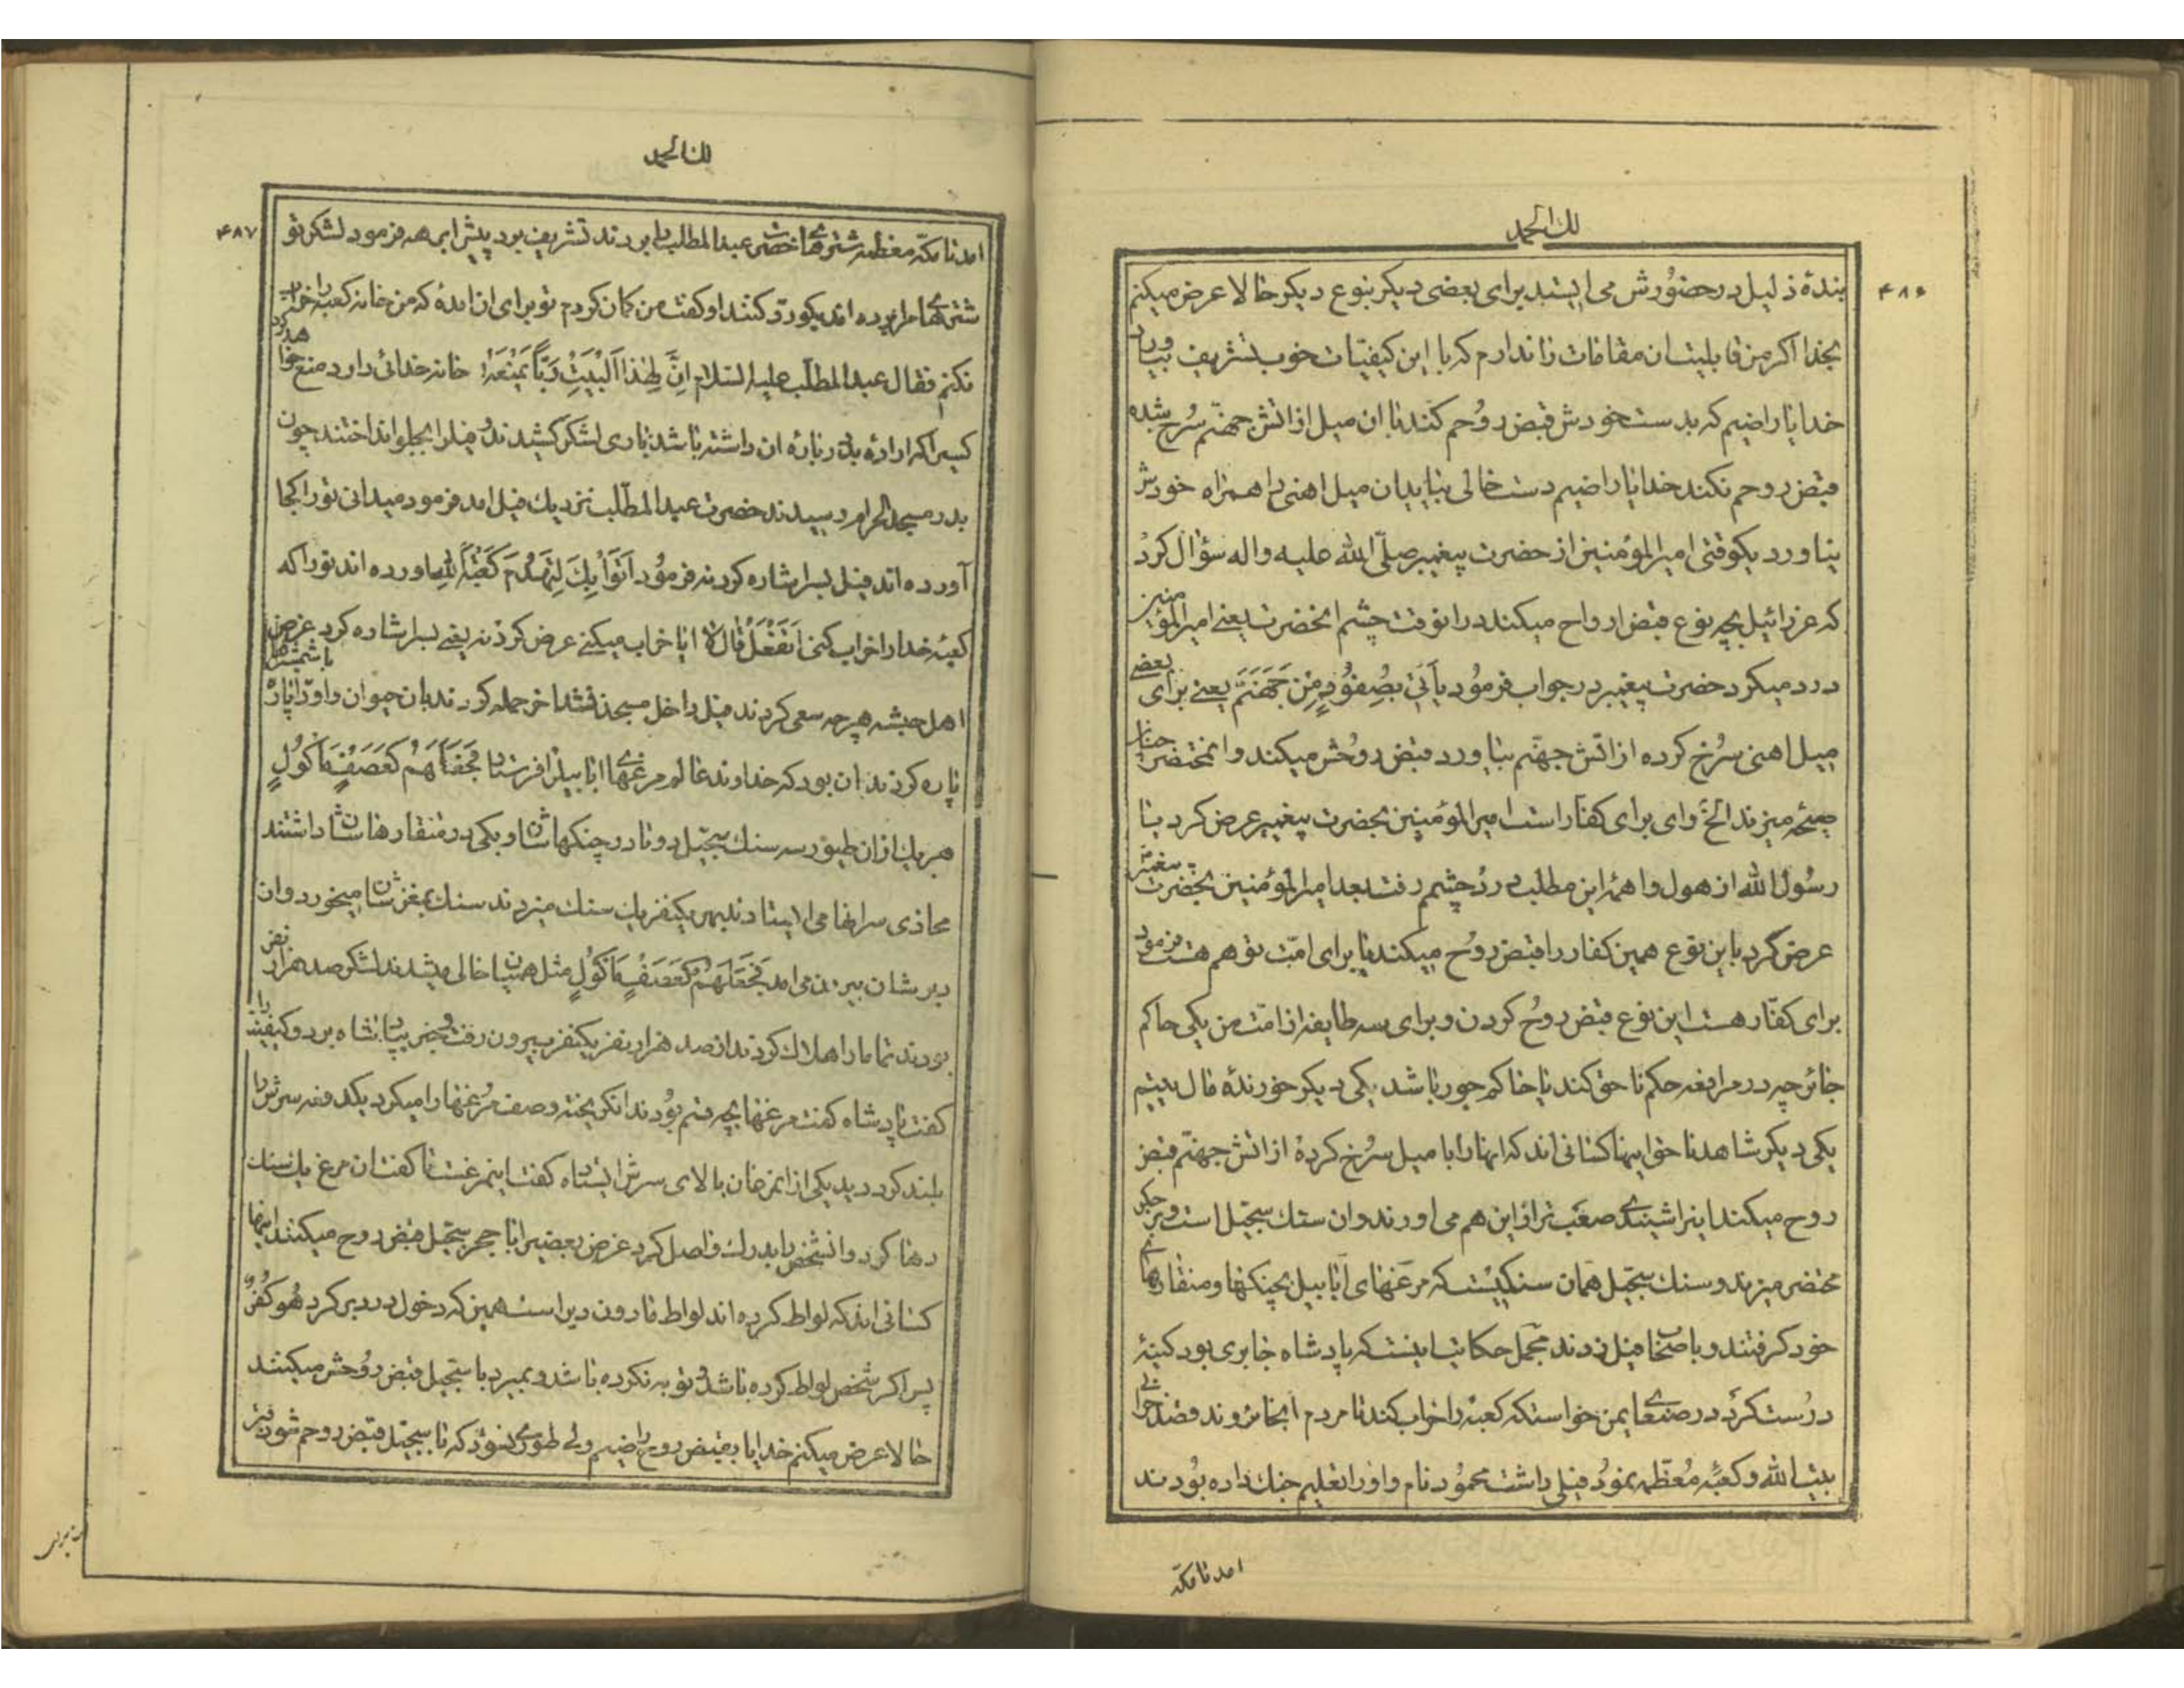 لك الحمد
۴۸۶
بندهٔ ذلیل در حضورش می ایستد برای بعضی دیگر بنوع دیگر حالا عرض میکنم
بخدا اکر من قابلیت ان مقامات را ندارم که با این کیفیّات خوب تشریف بیاورد
خدایا راضیم که بدست خودش قبض روُحم کند با ان میل از اتش جهنّم سُرخ شده
قبض روحم نکند خدایا راضیم دست خالی بیاید ان میل اهنی را همراه خودش
نیاورد یکوقتی امیرالمؤمنین از حضرت پیغمبر صلّی الله علیه واله سؤال کرد
که عزرائیل بچه نوع قبض ارواح میکند در انوقت چشم انحضرت یعنے امیرالمؤمنین
درد میکرد حضرت پیغمبر در جواب فرموُد یَأتی بِصُفّوُدٍ مِنْ جَهَنَّمَ یعنے برای بعضے
میل اهنی سرُخ کرده از اتش جهنّم بیاورد قبض روُحش میکند وانمختضر چنان
صیحه میزند الخ وای برای کفّار است امیرالمؤمنین بحضرت پیغمبر عرض کرد یا
رسُول الله از هول واهمهٔ این مطلب درد چشمم رفت بعد امیرالمؤمنین بحضرت پیغمبر
عرض کرد باین نوع همین کفار را قبض روُح میکند یا برای امّت تو هم هست فرمود
برای کفّار هست این نوع قبض روُح کردن و برای سه طایفه از امّت من یکی حاکم
جائر چه در مرافعه حکم ناحق کند یا حاکم جور باشد یکی دیکر خورندهٔ مال یتیم
یکی دیکر شاهد ناحق اینها کسانی اند که انها را با میل سرُخ کردهٔ از اتش جهنّم قبض
روح میکند اینرا شنیدی صعَب تر از این هم می اورند وان سنك سجّیل است وبر جکر
مختضر میزند وسنك سجّیل همان سنکیست که مرغهای ابابیل بچنکها ومنقارهای
خود کرفتند وباصحاب فیل زدند مجمل حکایت اینست که پادشاه جابری بود کنیسهٔ
درُست کرد در صنعای یمن خواست که کعبه را خراب کند تا مردم انجا نروند قصد خرابی
بیت الله وکعبهٔ مُعظّمه نموُد فیلی داشت محموُد نام واو را تعلیم جنك داده بوُدند
امد تا مکّه
لك الحمد
۴۸۷
امد تا مکّه معظّمه شترهای حضرت عبدالمطلب را بردند تشریف برد پیش ابرهه فرمود لشکر تو
شترهای مرا برده اند بکو رد کنند او کفت من کمان کردم تو برای ان امدهٔ که من خانه کعبه را خراب
نکنم فقال عبدالمطلّب علیه السّلام اِنَّ لِهٰذَا الْبَیْتِ رَبّاً یَمْنَعَهُ خانه خدائی دارد منع خواهد کرد
کسیرا که اراده بد درباره ان داشته باشد باری لشکر کشیدند و فیلرا بجلو انداختند چون
بدر مسجد الحرام رسیدند حضرت عبدالمطّلب نزدیك فیل امد فرمود میدانی تو را کجا
آورده اند فیل بسر اشاره کرد نه فرمُود اَتَوْا بِكَ لِتَهْدُمَ کَعْبَهَ للهِ اورده اند تو را که
کعبهٔ خدا را خراب کنی اَتَفْعَلُ قالَ لا ایا خراب میکنے عرض کرد نه یعنے بسر اشاره کرد عرض
اهل حبشه هر چه سعی کردند فیل داخل مسجد نشد اخر حمله کردند بان حیوان و او را پاره با شمشیرها
پاره کردند ان بود که خداوند عالم مرغهای ابابیل را فرستاد فَجَعَلَهُمْ کَعَصْفٍ مَأکُولٍ
هر یك از ان طیور سه سنك سجّیل دو تا در چنکهاشان و یکی در منقارهاشان داشتند
محاذی سر انها می ایستادند بهر یکنفر یك سنك میزدند سنك بمغزشان میخورد و از
دبرشان بیرون می امد فَجَعَلَهُمْ کَعَصْفٍ مَأکُولٍ مثل همیان خالی میشدند لشکر صد هزار نفر
بودند تماما را هلاك کردند از صد هزار نفر یکنفر بیرون رفت و خبر بپادشاه برد وکیفیت را
کفت پادشاه کفت مرغها بچه قسم بوُدند انکریخته وصف مُرغها را میکرد یکدفعه سرش را
بلند کرد دید یکی از انمرغان بالای سرش ایستاده کفت اینمرغست تا کفت ان مرغ یك سنك
رها کرد و انشخص را بدرك واصل کرد عرض بعضیرا با حجر سجّیل قبض روح میکنند اینها
کسانی اند که لواط کرده اند لواط مادون دبر است همین که دخول در دبر کرد هُوَ کُفْرٌ
پس اکر شخص لواط کرده باشد و توبه نکرده باشد و بمیرد با سجّیل قبض روُحش میکنند
حالا عرض میکنم خدایا بقبض روح راضیم ولی طوری نشود که با سجّیل قبض روحم شود